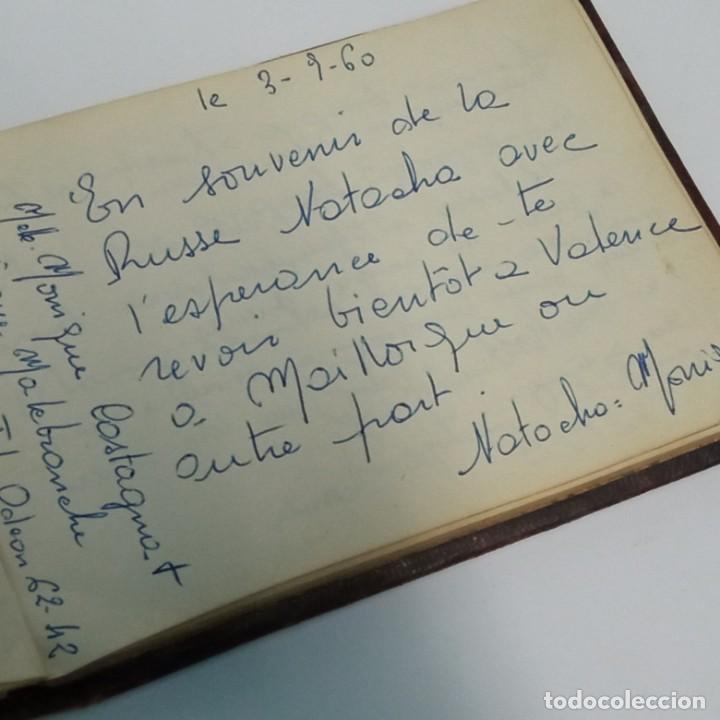 le 3-9-60
En souvenir de la
Russe Natacha avec
l'esperance de te
revoir bientôt a Valence
a Maillorque ou
autre part.
Natacha = Moni
Melle. Monique Castagnet
Malebranche
Odeon 62-42
todocoleccion